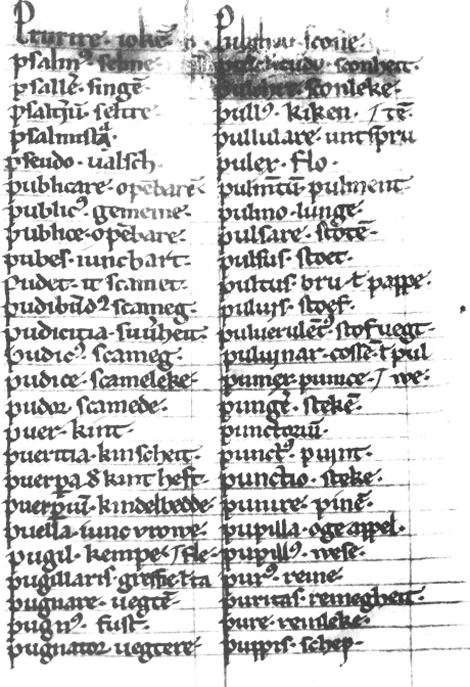 Prurire · iokē
psalm⁹ · selme
psallē · singē
psaltiū · seltre
psalmista
pseudo · ualsch
publicare · opēbarē
public⁹ · gemeine
publice · opēbare
pubes · iuncbart
Pudet · it scamet
pudibūd⁹ · scameg
pudicitia · suuͥheit
Pudic⁹ · scameg
pudice · scameleke
pudor · scamede
puer · kint
pueritia · kinscheit
puerpa · kint heft
puerpiū · kindelbedde
puella · iuncvrowe
pugil · kempe
pugillaris · greffie
pugnare · uegtē
pugn⁹ · fust
pugnator · uegtere
Pulchra · scone
pulchritudo · sconheit
pulchre · sconleke
pull⁹ · kiken / tē
pullulare · untspru
pulex · flo
pulmtū · pulment
pulmo · lunge
pulsare · stotē
pulsus · stoet
pultus · bru ł pappe
puluis · stof
puluerulēt⁹ · stofuegt
puluinar · cossē ł pul
pumex · pumce / we
pungē · stekē
punctoriū
punct⁹ · puint
punctio · steke
punire · pinē
pupilla · oge appel
pupill⁹ · wese
pur⁹ · reine
puritas · reinegheit
pure · reinleke
puppis · schep